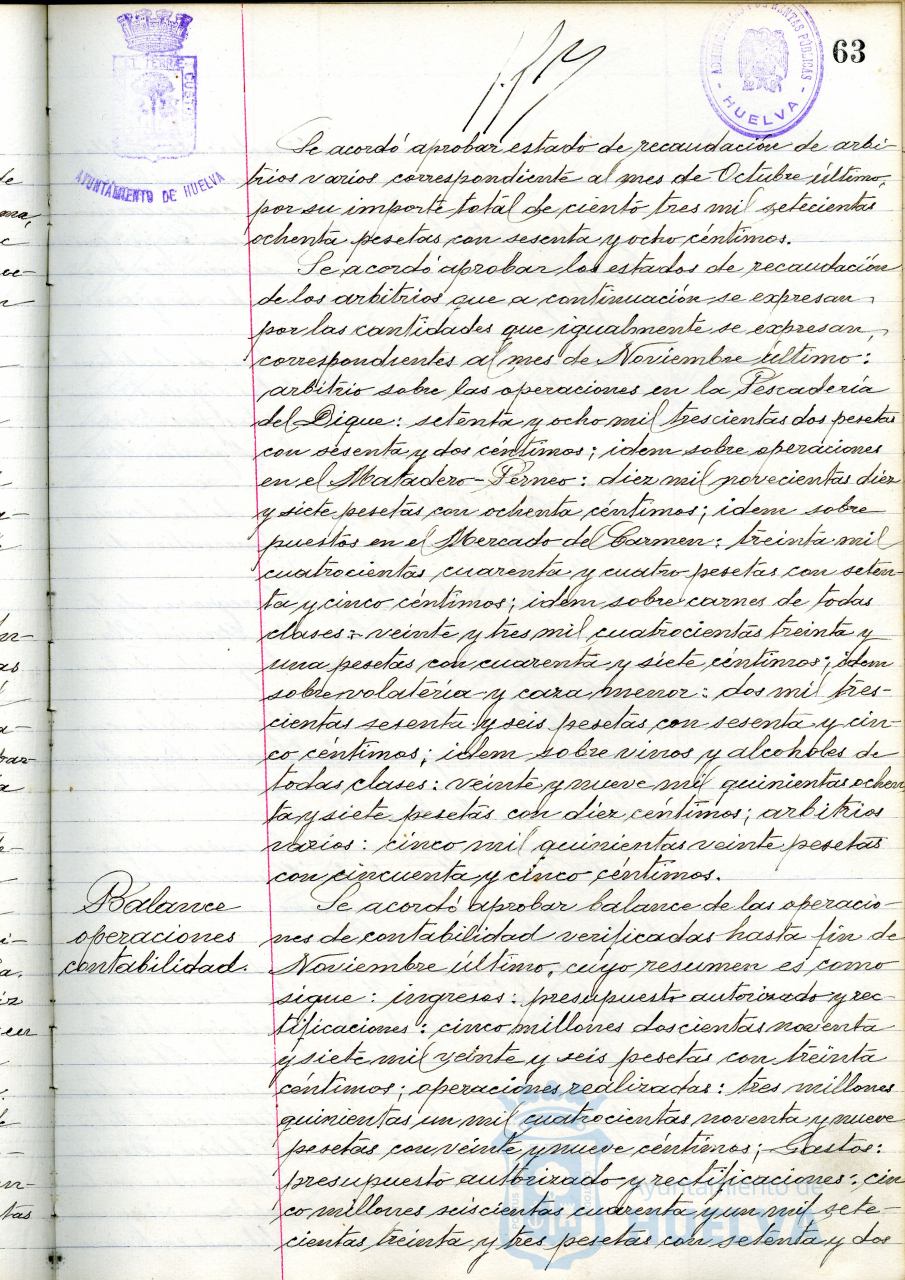 63
EL TERRÆ CUSTO
AYUNTAMIENTO DE HUELVA
ADMINISTRACION DE RENTAS PÚBLICAS
- HUELVA -
Se acordó aprobar estado de recaudación de arbi-
trios varios correspondiente al mes de Octubre último,
por su importe total de ciento tres mil setecientas
ochenta pesetas con sesenta y ocho céntimos.
Se acordó aprobar los estados de recaudación
de los arbitrios que a continuación se expresan,
por las cantidades que igualmente se expresan,
correspondientes al mes de Noviembre último:
arbitrio sobre las operaciones en la Pescadería
del Dique: setenta y ocho mil trescientas dos pesetas
con sesenta y dos céntimos; idem sobre operaciones
en el Matadero-Perneo: diez mil novecientas diez
y siete pesetas con ochenta céntimos; idem sobre
puestos en el Mercado del Carmen: treinta mil
cuatrocientas cuarenta y cuatro pesetas con seten-
ta y cinco céntimos; idem sobre carnes de todas
clases: veinte y tres mil cuatrocientas treinta y
una pesetas con cuarenta y siete céntimos; idem
sobre volatería y caza menor: dos mil tres-
cientas sesenta y seis pesetas con sesenta y cin-
co céntimos; idem sobre vinos y alcoholes de
todas clases: veinte y nueve mil quinientas ochen
ta y siete pesetas con diez céntimos; arbitrios
varios: cinco mil quinientas veinte pesetas
con cincuenta y cinco céntimos.
Balance
operaciones
contabilidad.
Se acordó aprobar balance de las operacio-
nes de contabilidad verificadas hasta fin de
Noviembre último, cuyo resumen es como
sigue: ingresos: presupuesto autorizado y rec-
tificaciones: cinco millones doscientas noventa
y siete mil veinte y seis pesetas con treinta
céntimos; operaciones realizadas: tres millones
quinientas un mil cuatrocientas noventa y nueve
pesetas con veinte y nueve céntimos; Gastos:
presupuesto autorizado y rectificaciones: cin
co millones seiscientas cuarenta y un mil sete-
cientas treinta y tres pesetas con setenta y dos
Ayuntamiento de
HUELVA